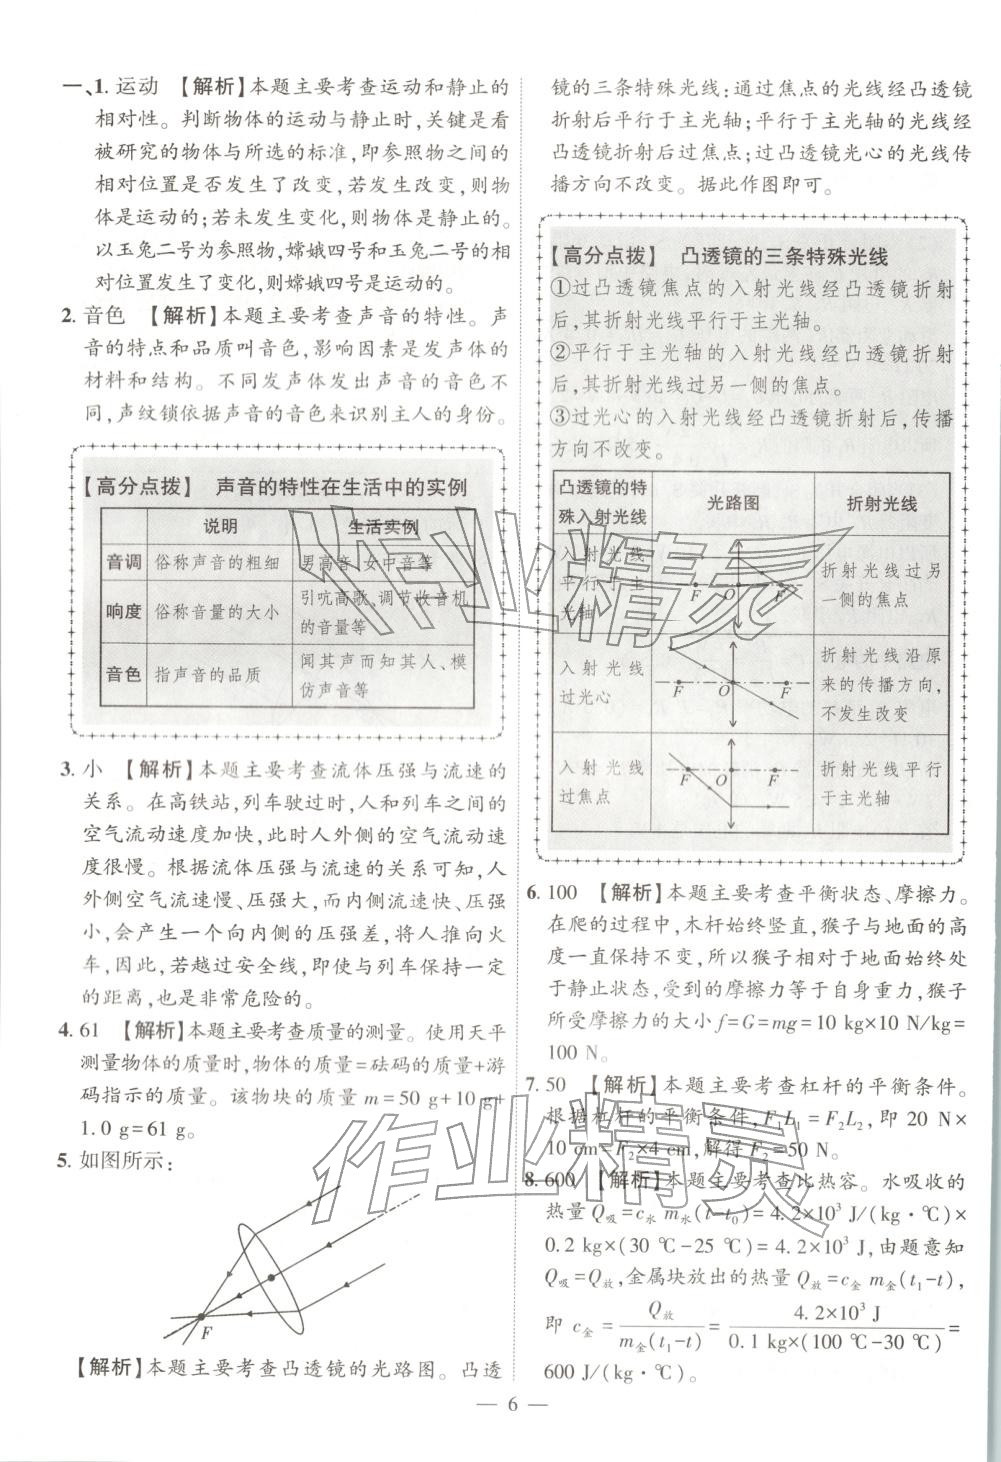 一、1. 运动 【解析】本题主要考查运动和静止的
相对性。判断物体的运动与静止时,关键是看
被研究的物体与所选的标准,即参照物之间的
相对位置是否发生了改变,若发生改变,则物
体是运动的;若未发生变化,则物体是静止的。
以玉兔二号为参照物,嫦娥四号和玉兔二号的相
对位置发生了变化,则嫦娥四号是运动的。
2. 音色 【解析】本题主要考查声音的特性。声
音的特点和品质叫音色,影响因素是发声体的
材料和结构。不同发声体发出声音的音色不
同,声纹锁依据声音的音色来识别主人的身份。
【高分点拨】 声音的特性在生活中的实例
说明 生活实例
音调 俗称声音的粗细 男高音、女中音等
响度 俗称音量的大小 引吭高歌、调节收音机
的音量等
音色 指声音的品质 闻其声而知其人、模
仿声音等
3. 小 【解析】本题主要考查流体压强与流速的
关系。在高铁站,列车驶过时,人和列车之间的
空气流动速度加快,此时人外侧的空气流动速
度很慢。根据流体压强与流速的关系可知,人
外侧空气流速慢、压强大,而内侧流速快、压强
小,会产生一个向内侧的压强差,将人推向火
车,因此,若越过安全线,即使与列车保持一定
的距离,也是非常危险的。
4. 61 【解析】本题主要考查质量的测量。使用天平
测量物体的质量时,物体的质量=砝码的质量+游
码指示的质量。该物块的质量 m=50 g+10 g+
1.0 g=61 g。
5. 如图所示:
F
【解析】本题主要考查凸透镜的光路图。凸透
镜的三条特殊光线:通过焦点的光线经凸透镜
折射后平行于主光轴;平行于主光轴的光线经
凸透镜折射后过焦点;过凸透镜光心的光线传
播方向不改变。据此作图即可。
【高分点拨】 凸透镜的三条特殊光线
①过凸透镜焦点的入射光线经凸透镜折射
后,其折射光线平行于主光轴。
②平行于主光轴的入射光线经凸透镜折射
后,其折射光线过另一侧的焦点。
③过光心的入射光线经凸透镜折射后,传播
方向不改变。
凸透镜的特
殊入射光线 光路图 折射光线
入射光线
平行于主
光轴 F O F 折射光线过另
一侧的焦点
入射光线
过光心 F O F 折射光线沿原
来的传播方向,
不发生改变
入射光线
过焦点 F O F 折射光线平行
于主光轴
6. 100 【解析】本题主要考查平衡状态、摩擦力。
在爬的过程中,木杆始终竖直,猴子与地面的高
度一直保持不变,所以猴子相对于地面始终处
于静止状态,受到的摩擦力等于自身重力,猴子
所受摩擦力的大小 f=G=mg=10 kg×10 N/kg=
100 N。
7. 50 【解析】本题主要考查杠杆的平衡条件。
根据杠杆的平衡条件,F₁L₁=F₂L₂,即 20 N×
10 cm=F₂×4 cm,解得 F₂=50 N。
8. 600 【解析】本题主要考查比热容。水吸收的
热量 Q吸=c水 m水(t-t₀)=4.2×10³ J/(kg·℃)×
0.2 kg×(30 ℃-25 ℃)=4.2×10³ J,由题意知
Q吸=Q放,金属块放出的热量 Q放=c金 m金(t₁-t),
即 c金=Q放/m金(t₁-t)=4.2×10³ J/0.1 kg×(100 ℃-30 ℃)=
600 J/(kg·℃)。
— 6 —
作业精灵
作业精灵